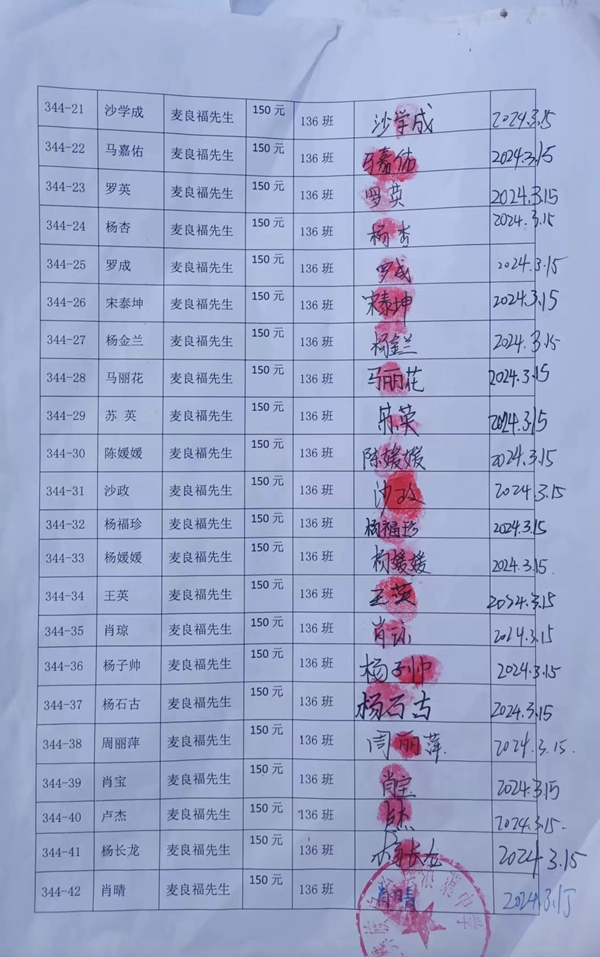 344-21 沙学成 麦良福先生 150元 136班 沙学成 2024.3.15
344-22 马嘉佑 麦良福先生 150元 136班 马嘉佑 2024.3.15
344-23 罗英 麦良福先生 150元 136班 罗英 2024.3.15
344-24 杨杏 麦良福先生 150元 136班 杨杏 2024.3.15
344-25 罗成 麦良福先生 150元 136班 罗成 2024.3.15
344-26 宋泰坤 麦良福先生 150元 136班 宋泰坤 2024.3.15
344-27 杨金兰 麦良福先生 150元 136班 杨金兰 2024.3.15
344-28 马丽花 麦良福先生 150元 136班 马丽花 2024.3.15
344-29 苏 英 麦良福先生 150元 136班 苏英 2024.3.15
344-30 陈媛媛 麦良福先生 150元 136班 陈媛媛 2024.3.15
344-31 沙政 麦良福先生 150元 136班 沙政 2024.3.15
344-32 杨福珍 麦良福先生 150元 136班 杨福珍 2024.3.15
344-33 杨媛媛 麦良福先生 150元 136班 杨媛媛 2024.3.15.
344-34 王英 麦良福先生 150元 136班 王英 2024.3.15
344-35 肖琼 麦良福先生 150元 136班 肖琼 2024.3.15
344-36 杨子帅 麦良福先生 150元 136班 杨子帅 2024.3.15
344-37 杨石古 麦良福先生 150元 136班 杨石古 2024.3.15
344-38 周丽萍 麦良福先生 150元 136班 周丽萍. 2024.3.15.
344-39 肖宝 麦良福先生 150元 136班 肖宝 2024.3.15
344-40 卢杰 麦良福先生 150元 136班 卢杰 2024.3.15.
344-41 杨长龙 麦良福先生 150元 136班 杨长龙 2024.3.15
344-42 肖晴 麦良福先生 150元 136班 肖晴 2024.3.15